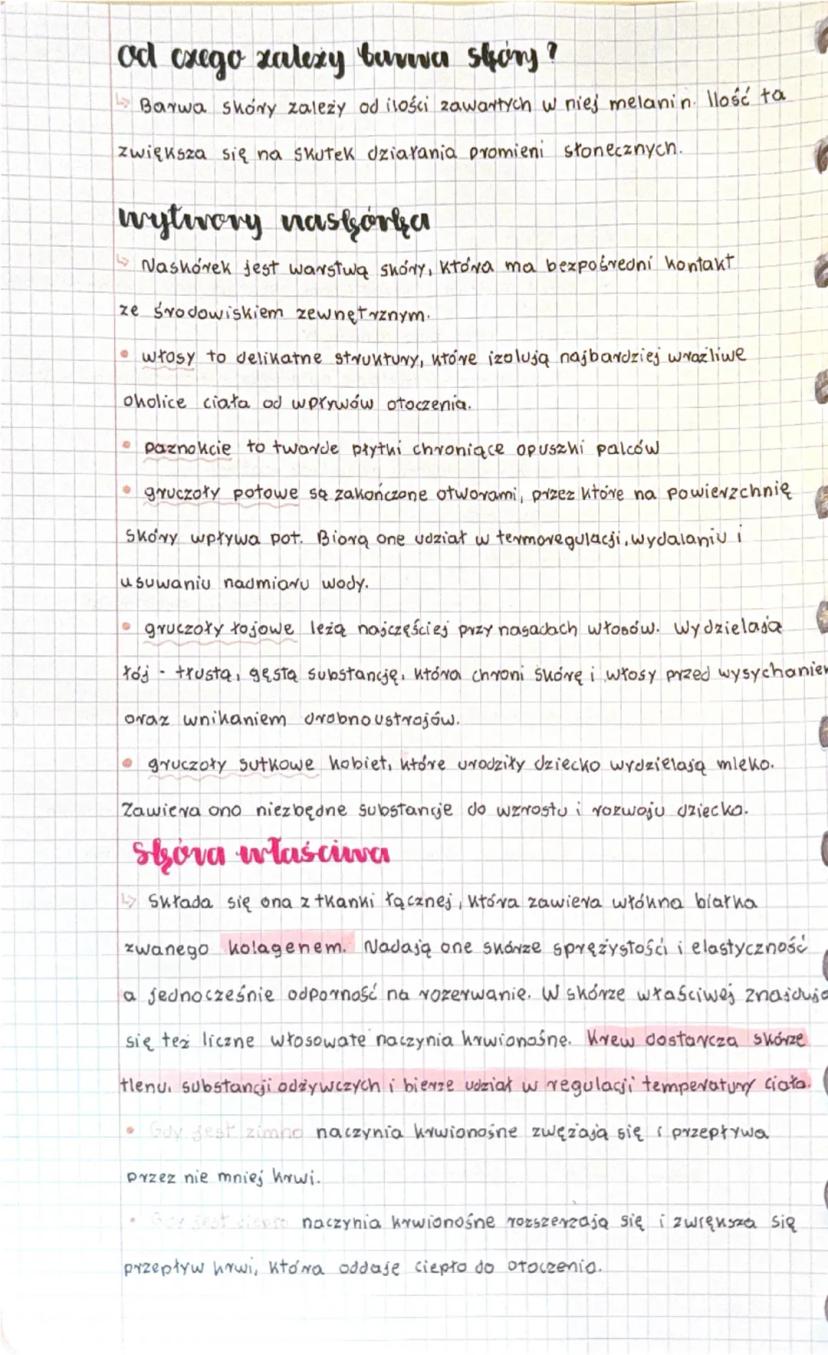 Od czego zależy barwa skóry?
Barwa skóry zależy od ilości zawartych w niej melanin. Ilość ta
zwiększa się na skutek działania promieni słonecznych.
Wytwory naskórka
Naskórek jest warstwą skóry, która ma bezpośredni kontakt
ze środowiskiem zewnętrznym.
• włosy to delikatne struktury, które izolują najbardziej wrażliwe
okolice ciała od wpływów otoczenia.
• paznokcie to twarde płytki chroniące opuszki palców
• gruczoły potowe są zakończone otworami, przez które na powierzchnię
skóry wpływa pot. Biorą one udział w termoregulacji, wydalaniu i
usuwaniu nadmiaru wody.
• gruczoły łojowe leżą najczęściej przy nasadach włosów. Wydzielają
łój - tłustą, gęstą substancję, która chroni skórę i włosy przed wysychaniem
oraz wnikaniem drobnoustrojów.
• gruczoły sutkowe kobiet, które urodziły dziecko wydzielają mleko.
Zawiera ono niezbędne substancje do wzrostu i rozwoju dziecka.
Skóra właściwa
Składa się ona z tkanki łącznej, która zawiera włókna białka
zwanego kolagenem. Nadają one skórze sprężystości i elastyczność
a jednocześnie odporność na rozerwanie. W skórze właściwej znajdują
się też liczne włosowate naczynia krwionośne. Krew dostarcza skórze
tlenu, substancji odżywczych i bierze udział w regulacji temperatury ciała.
• Gdy jest zimno naczynia krwionośne zwężają się i przepływa
przez nie mniej krwi.
• Gdy jest ciepło naczynia krwionośne rozszerzają się i zwiększa się
przepływ krwi, która oddaje ciepło do otoczenia.